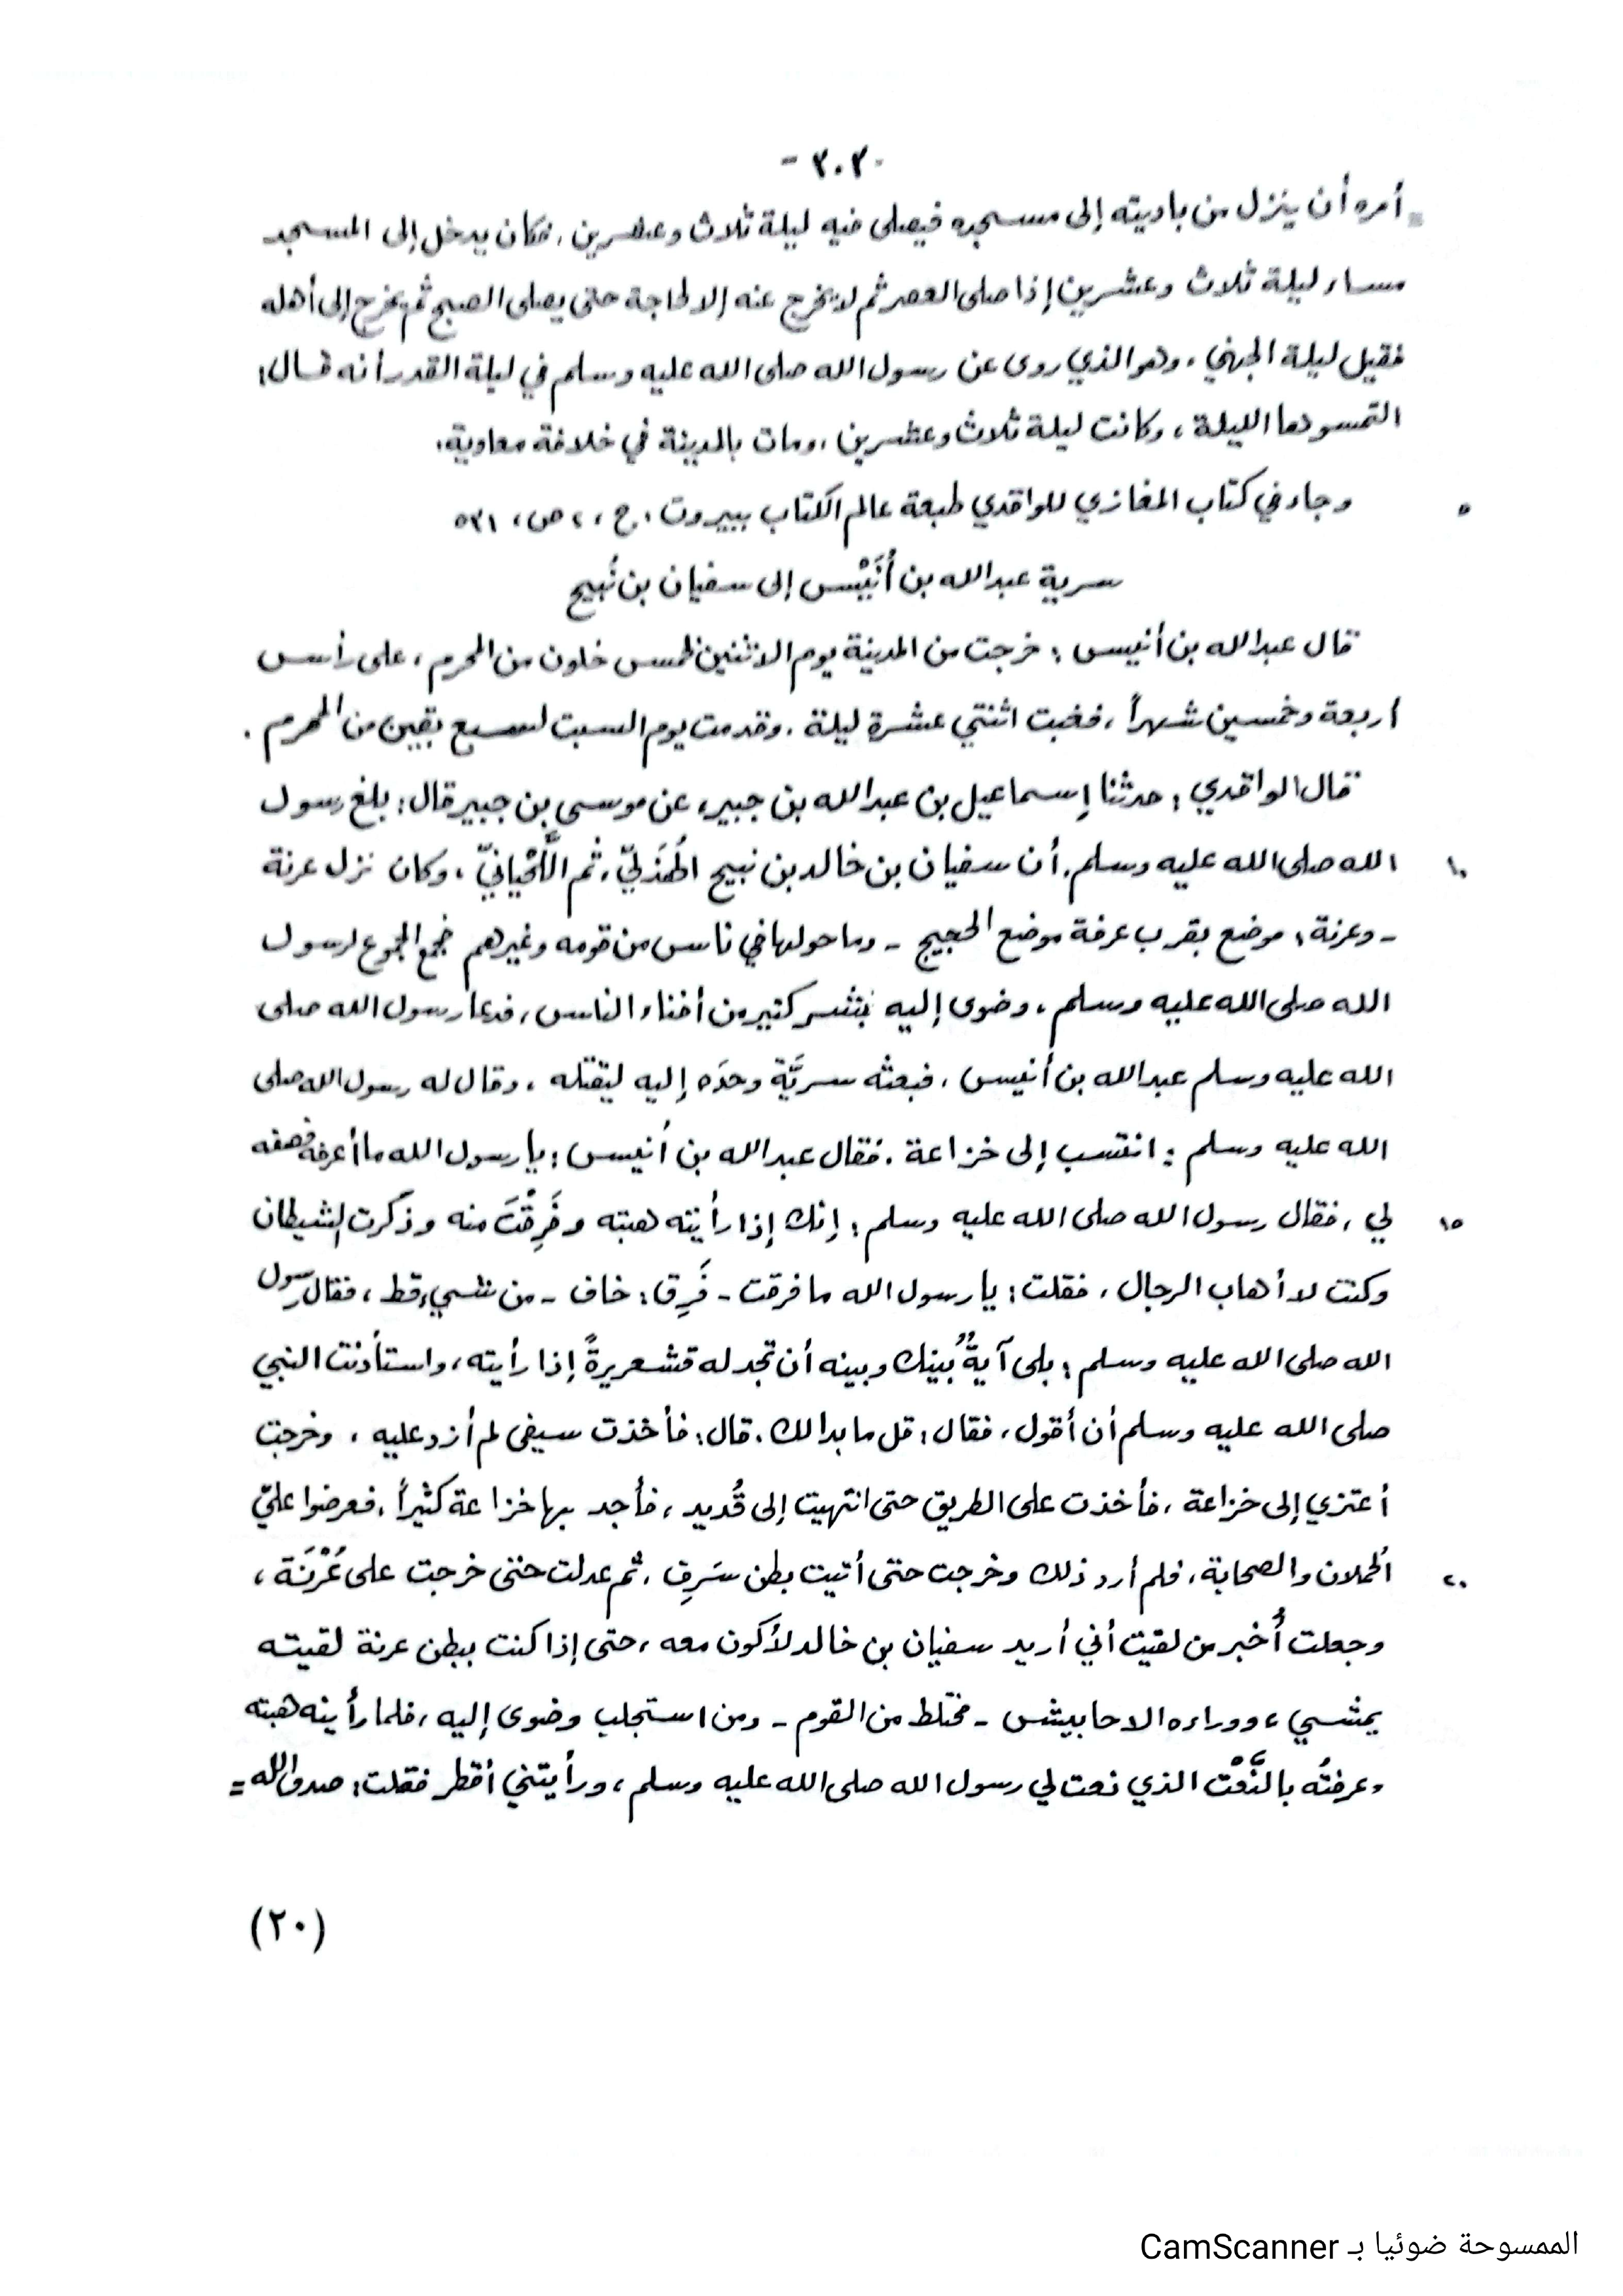 -٣٠٣-
= أمره أن ينزل من باديته إلى مسجده فيصلي فيه ليلة ثلاث وعشرين، فكان يدخل إلى المسجد
مساء ليلة ثلاث وعشرين إذا صلى العصر ثم لا يخرج عنه إلا لحاجة حتى يصلي الصبح ثم يخرج إلى أهله
فقيل ليلة الجهني، وهو الذي روى عن رسول الله صلى الله عليه وسلم في ليلة القدر أنه قال:
التمسوها الليلة، وكانت ليلة ثلاث وعشرين، ومات بالمدينة في خلافة معاوية.
٥ وجاء في كتاب المغازي للواقدي طبعة عالم الكتاب ببيروت، ج، ٢ ص، ٥٣١
سرية عبدالله بن أُنَيْس إلى سفيان بن نُبيح
قال عبدالله بن أنيس: خرجت من المدينة يوم الاثنين لخمس خلون من المحرم، على رأس
أربعة وخمسين شهراً، فغبت اثنتي عشرة ليلة، وقدمت يوم السبت لسبع بقين من المحرم.
قال الواقدي: حدثنا إسماعيل بن عبدالله بن جبير، عن موسى بن جبير قال: بلغ رسول
١٠ الله صلى الله عليه وسلم، أن سفيان بن خالد بن نبيح الهُذَليّ، ثم اللِّحْيانيّ، وكان نزل عرنة
- وعرنة: موضع بقرب عرفة موضع الحجيج - وما حولها في ناس من قومه وغيرهم فجمع الجموع لرسول
الله صلى الله عليه وسلم، وضوى إليه بَشَر كثير من أفناء الناس، فدعا رسول الله صلى
الله عليه وسلم عبدالله بن أنيس، فبعثه سريَّة وحدَه إليه ليقتله، وقال له رسول الله صلى
الله عليه وسلم: انتسب إلى خزاعة. فقال عبدالله بن أُنيس: يا رسول الله ما أعرفه فصفه
١٥ لي، فقال رسول الله صلى الله عليه وسلم: إنك إذا رأيته هبته وفَرِقْتَ منه وذكرت الشيطان
وكنت لا أهاب الرجال، فقلت: يا رسول الله ما فرقت - فَرِق: خاف - من شيء قط، فقال رسول
الله صلى الله عليه وسلم: بلى آيةٌ بينك وبينه أن تجد له قشعريرةً إذا رأيته، واستأذنت النبي
صلى الله عليه وسلم أن أقول، فقال: قل ما بدا لك. قال: فأخذت سيفي لم أزد عليه، وخرجت
أعتزي إلى خزاعة، فأخذت على الطريق حتى انتهيت إلى قُديد، فأجد بها خزاعة كثيراً، فعرضوا عليّ
٢٠ الحملان والصحابة، فلم أرد ذلك وخرجت حتى أتيت بطن سَرِف، ثم عدلت حتى خرجت على عُرَنَة،
وجعلت أُخبر من لقيت أني أريد سفيان بن خالد لأكون معه، حتى إذا كنت ببطن عرنة لقيته
يمشي، ووراءه الاحابيش - مختلط من القوم - ومن استجلب وضوى إليه، فلما رأيته هبته
وعرفتُه بالنَّعْت الذي نعت لي رسول الله صلى الله عليه وسلم، ورأيتني أقطر فقلت: صدق الله =
(٢٠)
الممسوحة ضوئيا بـ CamScanner